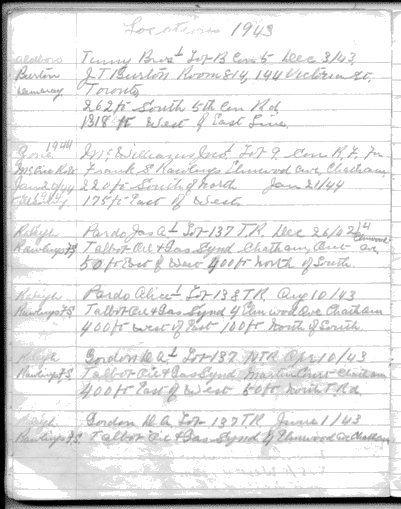 Locations 1943
Tunny Bros 1 Lot B Con 5 Dec 3/43
Burton J.T. Burton Room 814, 144 Victoria St,
Toronto
262 ft South 5th Con Rd
1318 ft West of East Line
1944
Zone Lot 9 Con
Frank S Rawlings Elmwood Ave, Chatham
Jan 20/44 220 ft South of North Jan 21/44
175 ft East of West
Raleigh Pardo Jas A 1 Lot 137 T.R. Dec 26/42
Rawlings F.S. Talbot Oil & Gas Synd Chatham, Ont
50 ft East of West 400 ft North of South
Raleigh Pardo Alice 1 Lot 138 T.R. Aug 10/43
Rawlings F.S. Talbot Oil & Gas Synd 4 Elmwood Ave Chatham
400 ft West of East 100 ft North of South
Raleigh Gordon D A 1 Lot 137 NTR Apr 10/43
Rawlings F.S. Talbot Oil & Gas Synd, Martin Court Chatham
400 ft East of West 50 ft North T. Rd
Raleigh Gordon D. A Lot 137 T.R. June 1/43
Rawlings F.S. Talbot Oil & Gas Synd 4 Elmwood Av Chatham